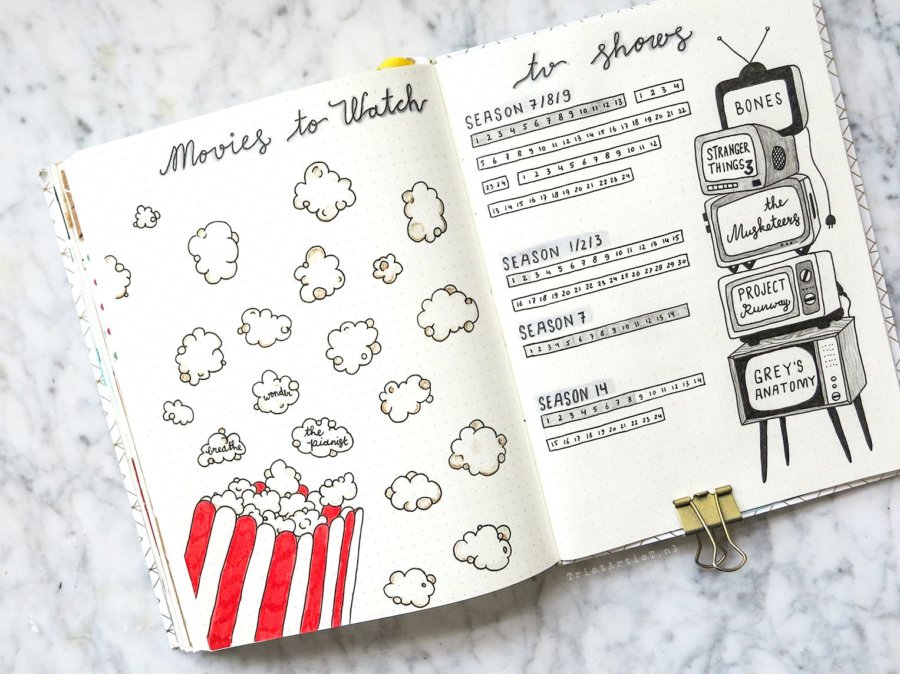 Movies to Watch
wonder
breathe
the
pianist
tv shows
SEASON 7/8/9
1 2 3 4 5 6 7 8 9 10 11 12 13
1 2 3 4
5 6 7 8 9 10 11 12 13 14 15 16 17 18 19 20 21 22
23 24
1 2 3 4 5 6 7 8 9 10 11 12
13 14 15 16 17 18 19 20 21 22 23 24
SEASON 1/2/3
1 2 3 4 5 6 7 8 9 10 11 12 13 14 15
16 17 18 19 20 21 22 23 24 25 26 27 28 29 30
SEASON 7
1 2 3 4 5 6 7 8 9 10 11 12 13 14
SEASON 14
1 2 3 4 5 6 7 8 9 10 11 12 13 14
15 16 17 18 19 20 21 22 23 24
BONES
STRANGER
THINGS 3
the
Musketeers
PROJECT
Runway
GREY'S
ANATOMY
TristArtisT.nl